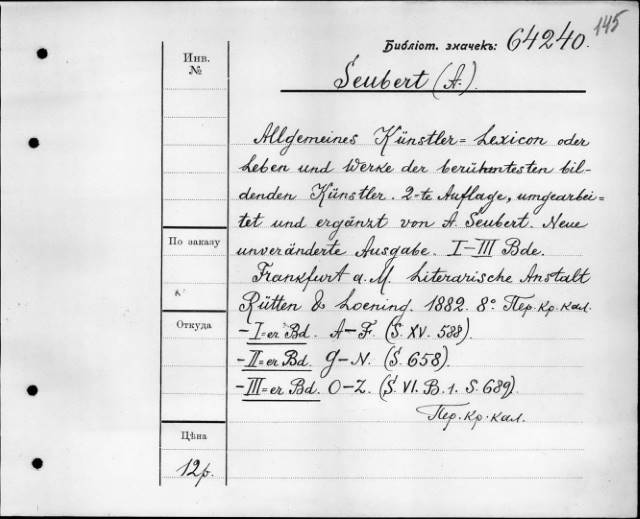 145
Библіот. значекъ: 64240.
Инв.
№
Seubert (A.).
Allgemeines Künstler= Lexicon oder
Leben und Werke der berühmtesten bil-
denden Künstler. 2-te Auflage, umgearbei=
tet und ergänzt von A. Seubert. Neue
По заказу
unveränderte Ausgabe. I–III Bde.
Frankfurt a. M. Literarische Anstalt
Rütten & Loening. 1882. 8° Пер. кр. кал.
Откуда
– I=er Bd. A–F. (S. XV. 588).
– II=er Bd. G–N. (S. 658).
– III=er Bd. O–Z. (S. VI. B. 1. S. 689).
Пер. кр. кал.
Цѣна
12 р.